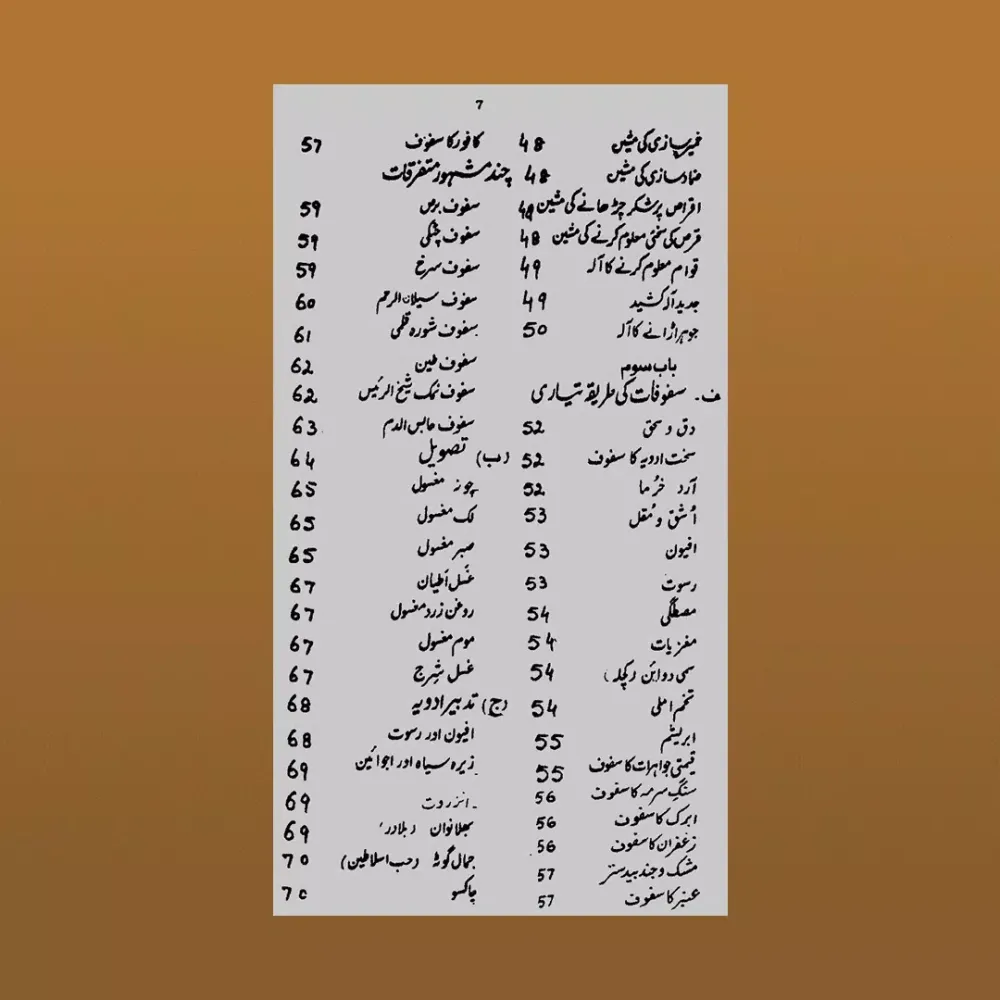 7
خمیر سازی کی مشین 48
ضماد سازی کی مشین 48
اقراص پر شکر چڑھانے کی مشین 48
قرص کی سختی معلوم کرنے کی مشین 48
قوام معلوم کرنے کا آلہ 49
جدید آلہ کشید 49
جوہر اڑانے کا آلہ 50
باب سوم
ف۔ سفوفات کی طریقہ تیاری
دق و سحق 52
سخت ادویہ کا سفوف 52
آرد خُرما 52
اُشق و مُقل 53
افیون 53
رسوت 53
مصطگی 54
مغزیات 54
سمی دوائیں (کچلہ) 54
تخم املی 54
ابریشم 55
قیمتی جواہرات کا سفوف 55
سنگ سرمہ کا سفوف 56
ابرک کا سفوف 56
زعفران کا سفوف 56
مشک و جند بیدستر 57
عنبر کا سفوف 57
کافور کا سفوف 57
چند مشہور متفرقات
سفوف برص 59
سفوف چٹکی 59
سفوف سرخ 59
سفوف سیلان الرحم 60
سفوف شورہ قلمی 61
سفوف طین 62
سفوف نمک شیخ الرئیس 62
سفوف حابس الدم 63
(ب) تصویل 64
چونہ مغسول 65
لک مغسول 65
صبر مغسول 65
غسل اطیان 67
روغن زرد مغسول 67
موم مغسول 67
غسل شیرج 67
(ج) تدبیر ادویہ 68
افیون اور رسوت 68
زیرہ سیاہ اور اجوائین 69
انزروت 69
بھلانواں (بلادر) 69
جمال گوٹہ (حب السلاطین) 70
چاکسو 70